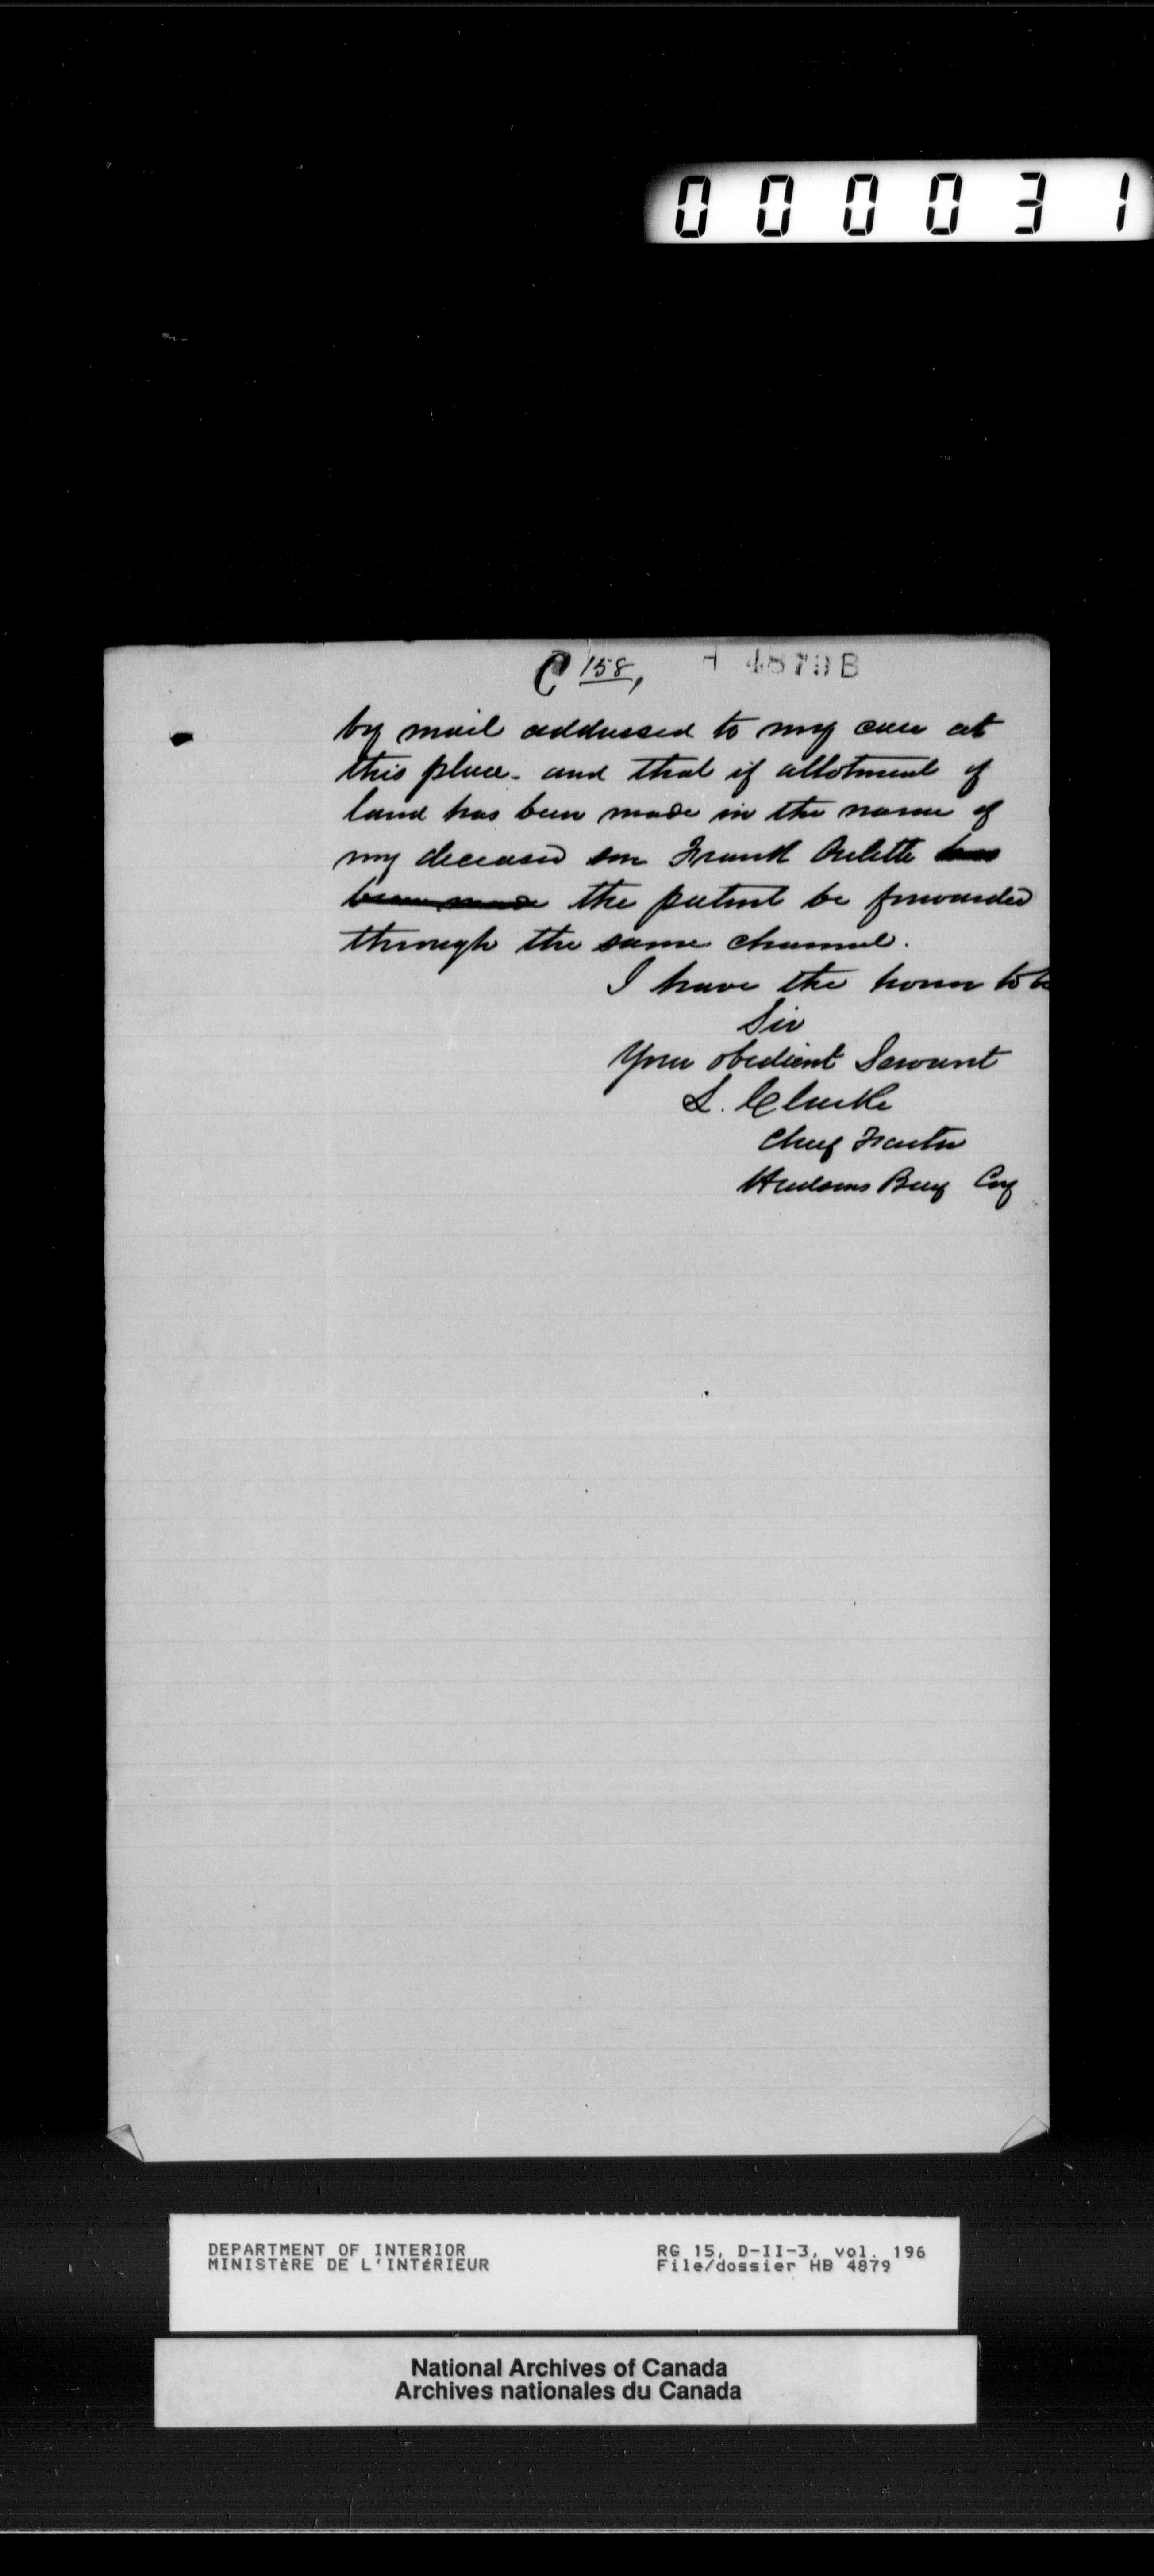 000031
C 158, H 4879B
by mail addressed to my care at
this place - and that if allotment of
land has been made in the name of
my deceased son Frank Oulette has
been made the patent be forwarded
through the same channel.
I have the honor to be
Sir
Your obedient Servant
L. Clarke
Chief Factor
Hudsons Bay Coy
DEPARTMENT OF INTERIOR
MINISTÈRE DE L'INTÉRIEUR
RG 15, D-II-3, vol. 196
File/dossier HB 4879
National Archives of Canada
Archives nationales du Canada